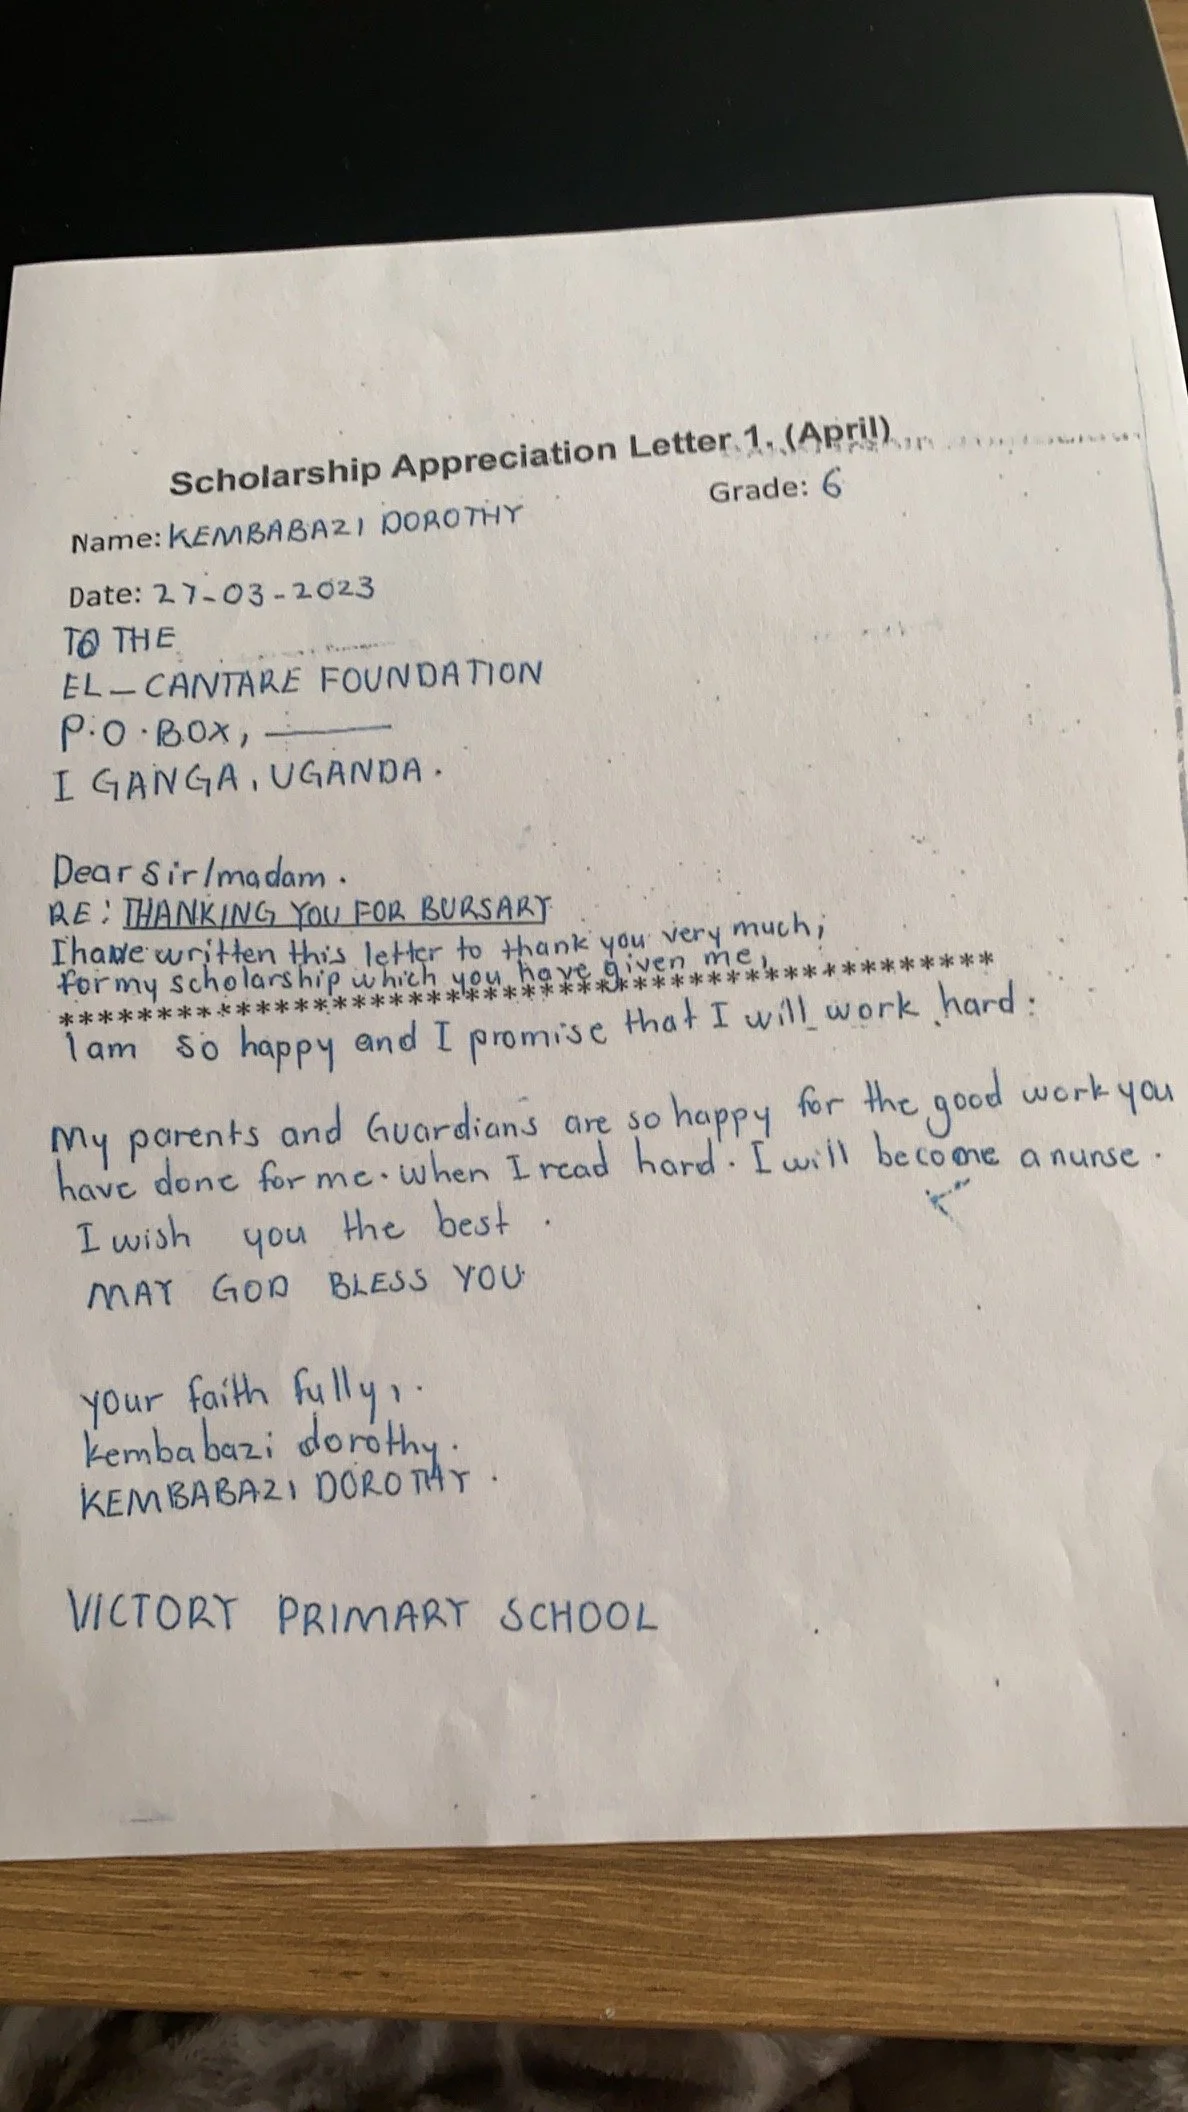 Scholarship Appreciation Letter 1. (April)
Grade: 6
Name: KEMBABAZI DOROTHY
Date: 27-03-2023
TO THE
EL-CANTARE FOUNDATION
P.O.BOX, ______
I GANGA, UGANDA.
Dear Sir/madam.
RE: THANKING YOU FOR BURSARY
I have written this letter to thank you very much;
for my scholarship which you have given me,
****************************************
I am so happy and I promise that I will work hard:
My parents and Guardians are so happy for the good work you
have done for me. when I read hard. I will become a nurse.
I wish you the best.
MAY GOD BLESS YOU
your faith fully,.
kembabazi dorothy.
KEMBABAZI DOROTHY.
VICTORY PRIMARY SCHOOL